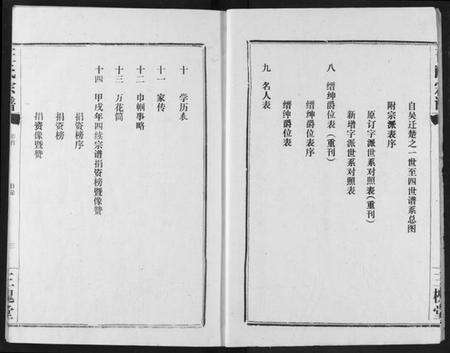 自吴迁楚之一世至四世谱系总图
附宗派表序
原订字派世系对照表(重刊)
新增字派世系对照表
八 缙绅爵位表(重刊)
缙绅爵位表序
缙绅爵位表
九 名人表
三槐堂
十 学历表
十一 家传
十二 巾帼事略
十三 万花筒
十四 甲戌年四续宗谱捐资榜暨像赞
捐资榜序
捐资榜
捐资像暨赞
氏宗谱
三槐堂